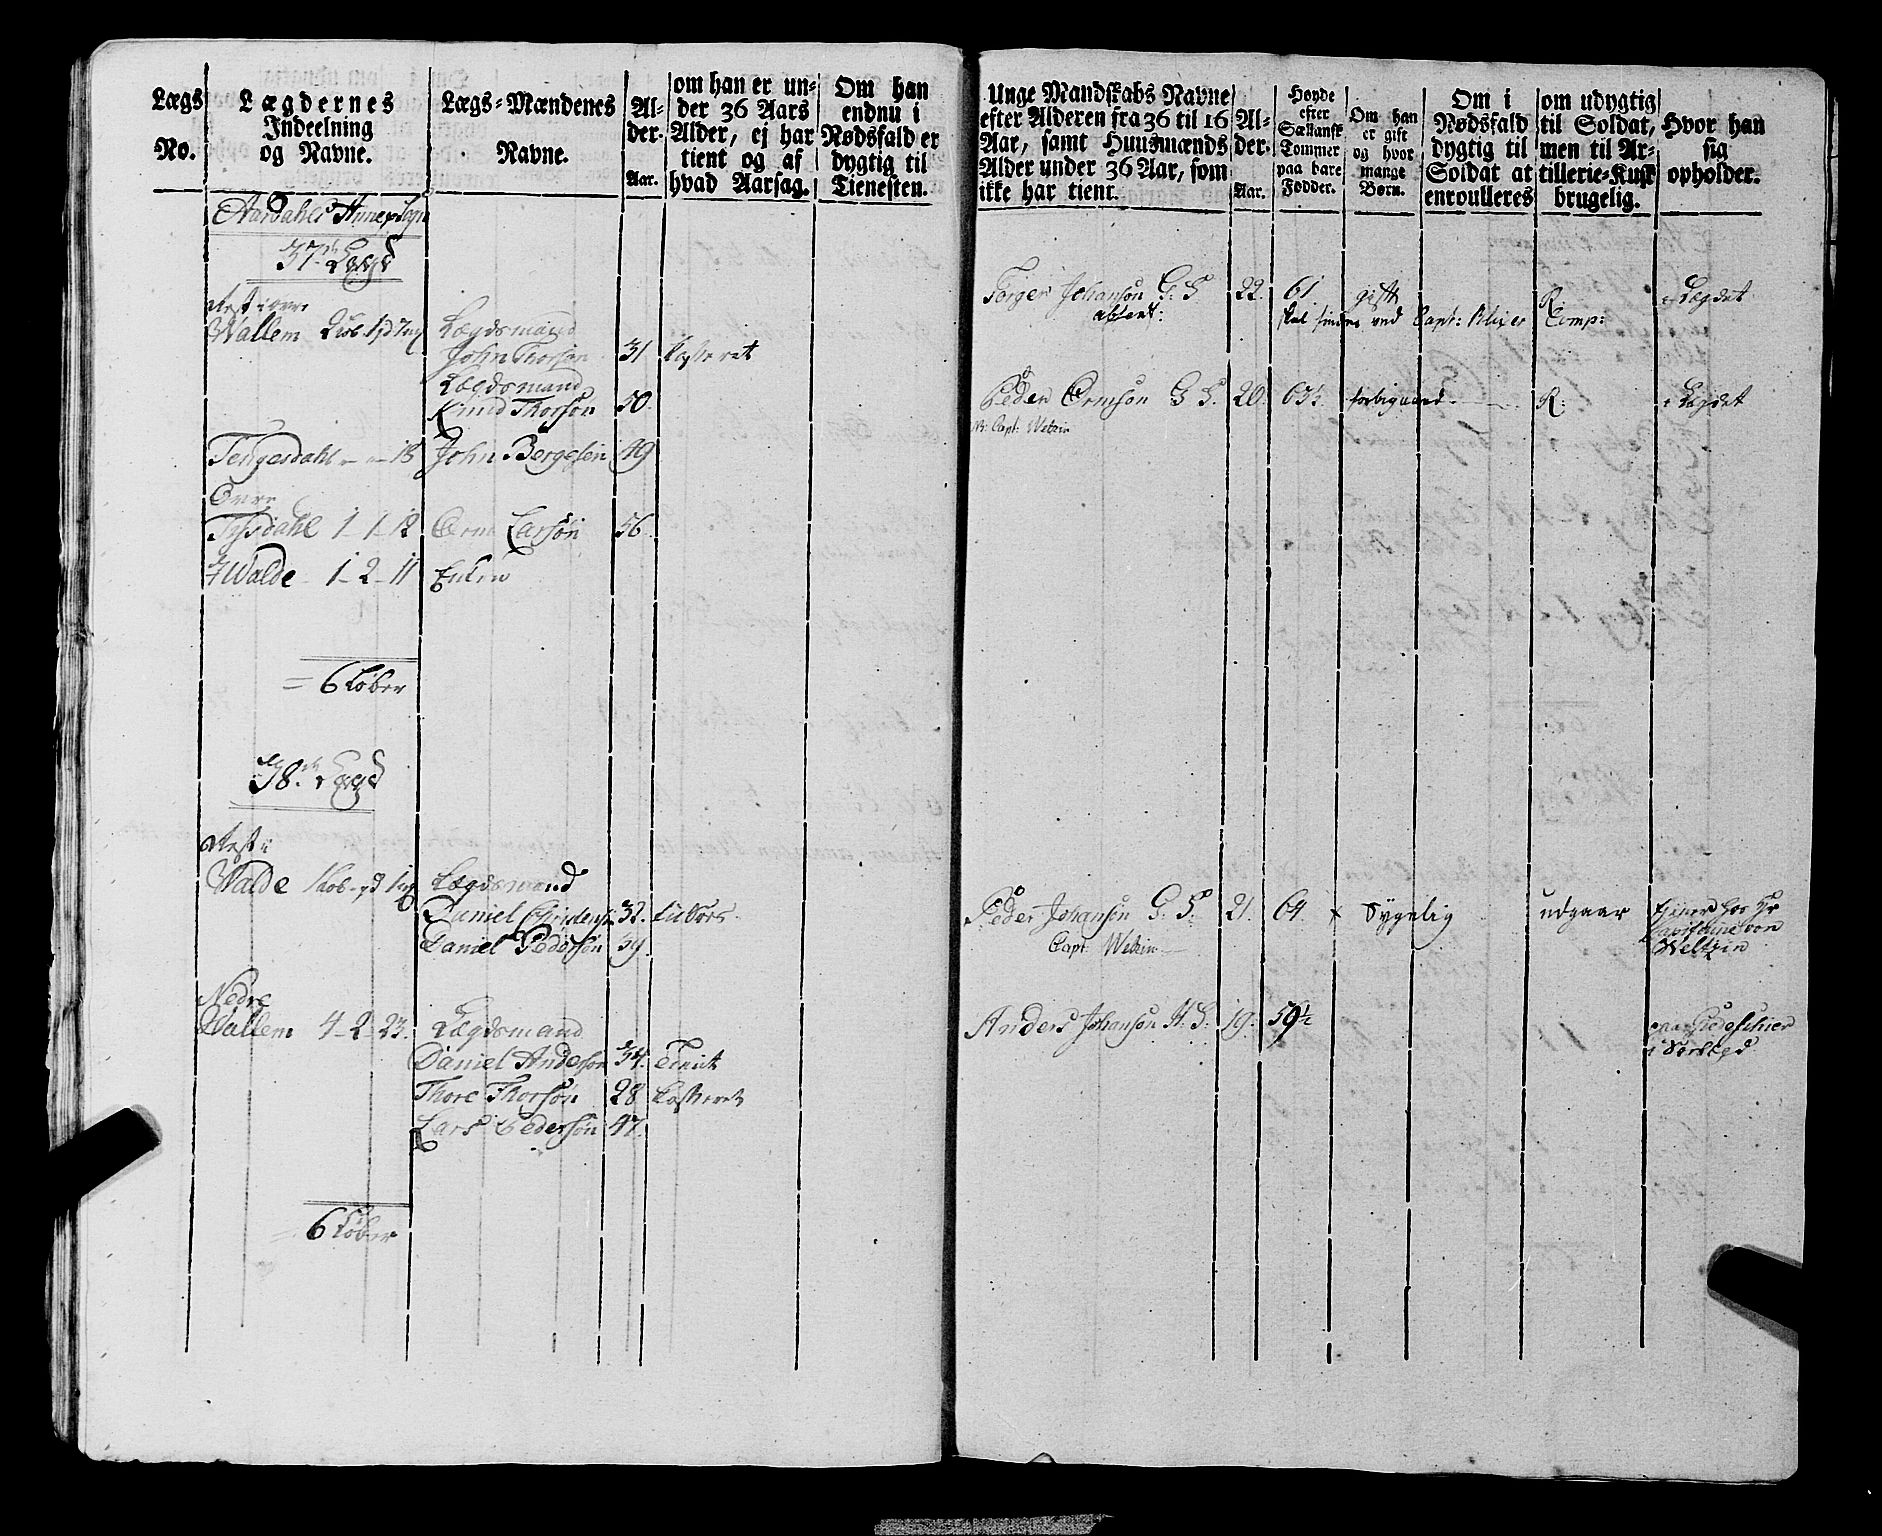 Lægs No.
Lægdernes Indeelning og Navne.
Lægs-Mændenes Navne.
Al-der. Aar.
om han er un-der 36 Aars Alder, ej har tient og af hvad Aarsag.
Om han endnu i Nødsfald er dygtig til Tienesten.
Aardahls Annex Sogn
37te Lægd
Rest i øvre
Wallem
Lægdsmand
John Thorsøn 31 Casseret
Lægdsmand
Knud Thorsøn 50.
Tengesdahl - - 18 John Bergesen 49
Øvre
Tysdahl 1-1-12 Orm Larsøn 56
Walde 1-2-11 Enken
= 6 Løber
38te Lægd
Rest i
Walde
Lægdsmand
Daniel 32.
Daniel Pedersøn 39.
Nedre
Wallem 4-2-23. Lægdsmand
Daniel Andersøn 34. Tient
Thore Thorsøn 28 Casseret
Lars Pedersøn 47.
= 6 Løber
Unge Mandskabs Navne efter Alderen fra 36 til 16 Aar, samt Huusmænds Alder under 36 Aar, som ikke har tient.
Al-der. Aar.
Høyde efter Sællansk Tommer paa bare Fødder.
Om han er gift og hvor mange Børn.
Om i Nødsfald dygtig til Soldat at enroulleres
om udygtig til Soldat, men til Ar-tillerie-Kusk brugelig.
Hvor han sig opholder.
Torger Johansøn G: S 22. 61 gift R: i Lægdet
absent: skal findes ved Capt: Comp:
Peder Ormsøn G S. 20. 63½ forbigaaed R: i Lægdet
Capt: Weltzin
Peder Johansøn G. S. 21. 64 x Sygelig udgaar tjener hos Hr
Capt: Weltzin Capitaine von
Weltzin
Anders Johansøn H. S. 19. 59½